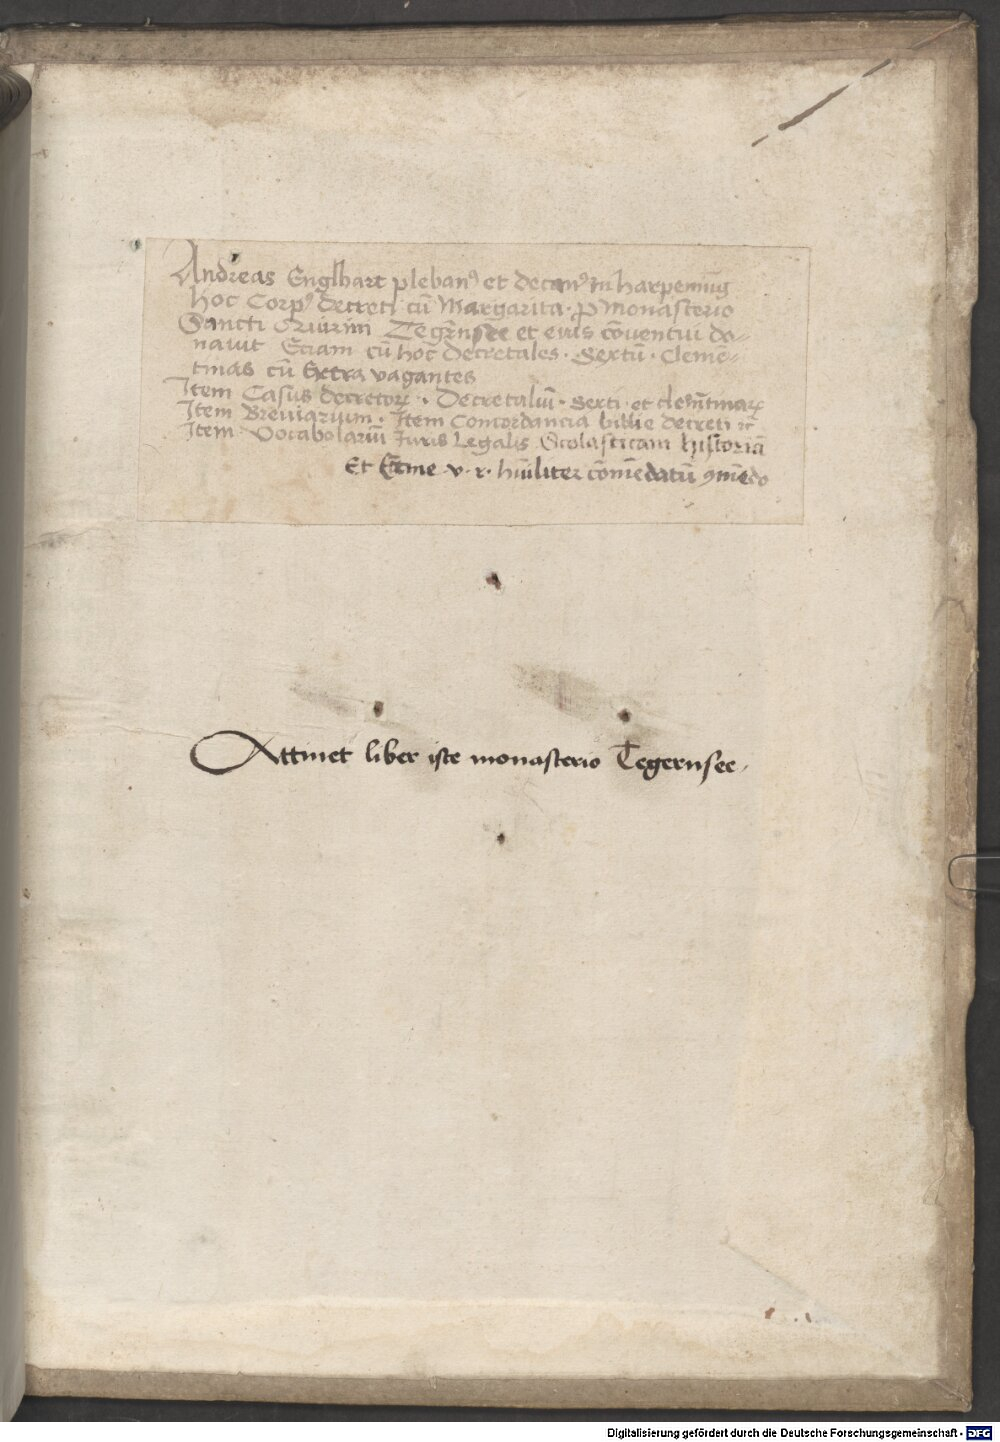 Andreas Englhart pleban⁹ et decan⁹ in harpenning
hoc Corp⁹ decreti cū Margarita · P monasterio
Sancti Quirini Tegernsee et eius cōventui do-
navit Eciam cū hoc decretales · Sextū · Clemē-
tinas cū Extra vagantes
Item Casus decretoꝝ · Decretaliū · Sexti · et clemētinaꝝ
Item Breviarium · Item Concordancia biblie decreti ꝛc
Item Vocabolariū Iuris Legalis Scolasticam historiā
Et me v · r · hūiliter cōmēdatū ꝯmēdo
Attinet liber iste monasterio Tegernsee
Digitalisierung gefördert durch die Deutsche Forschungsgemeinschaft - DFG